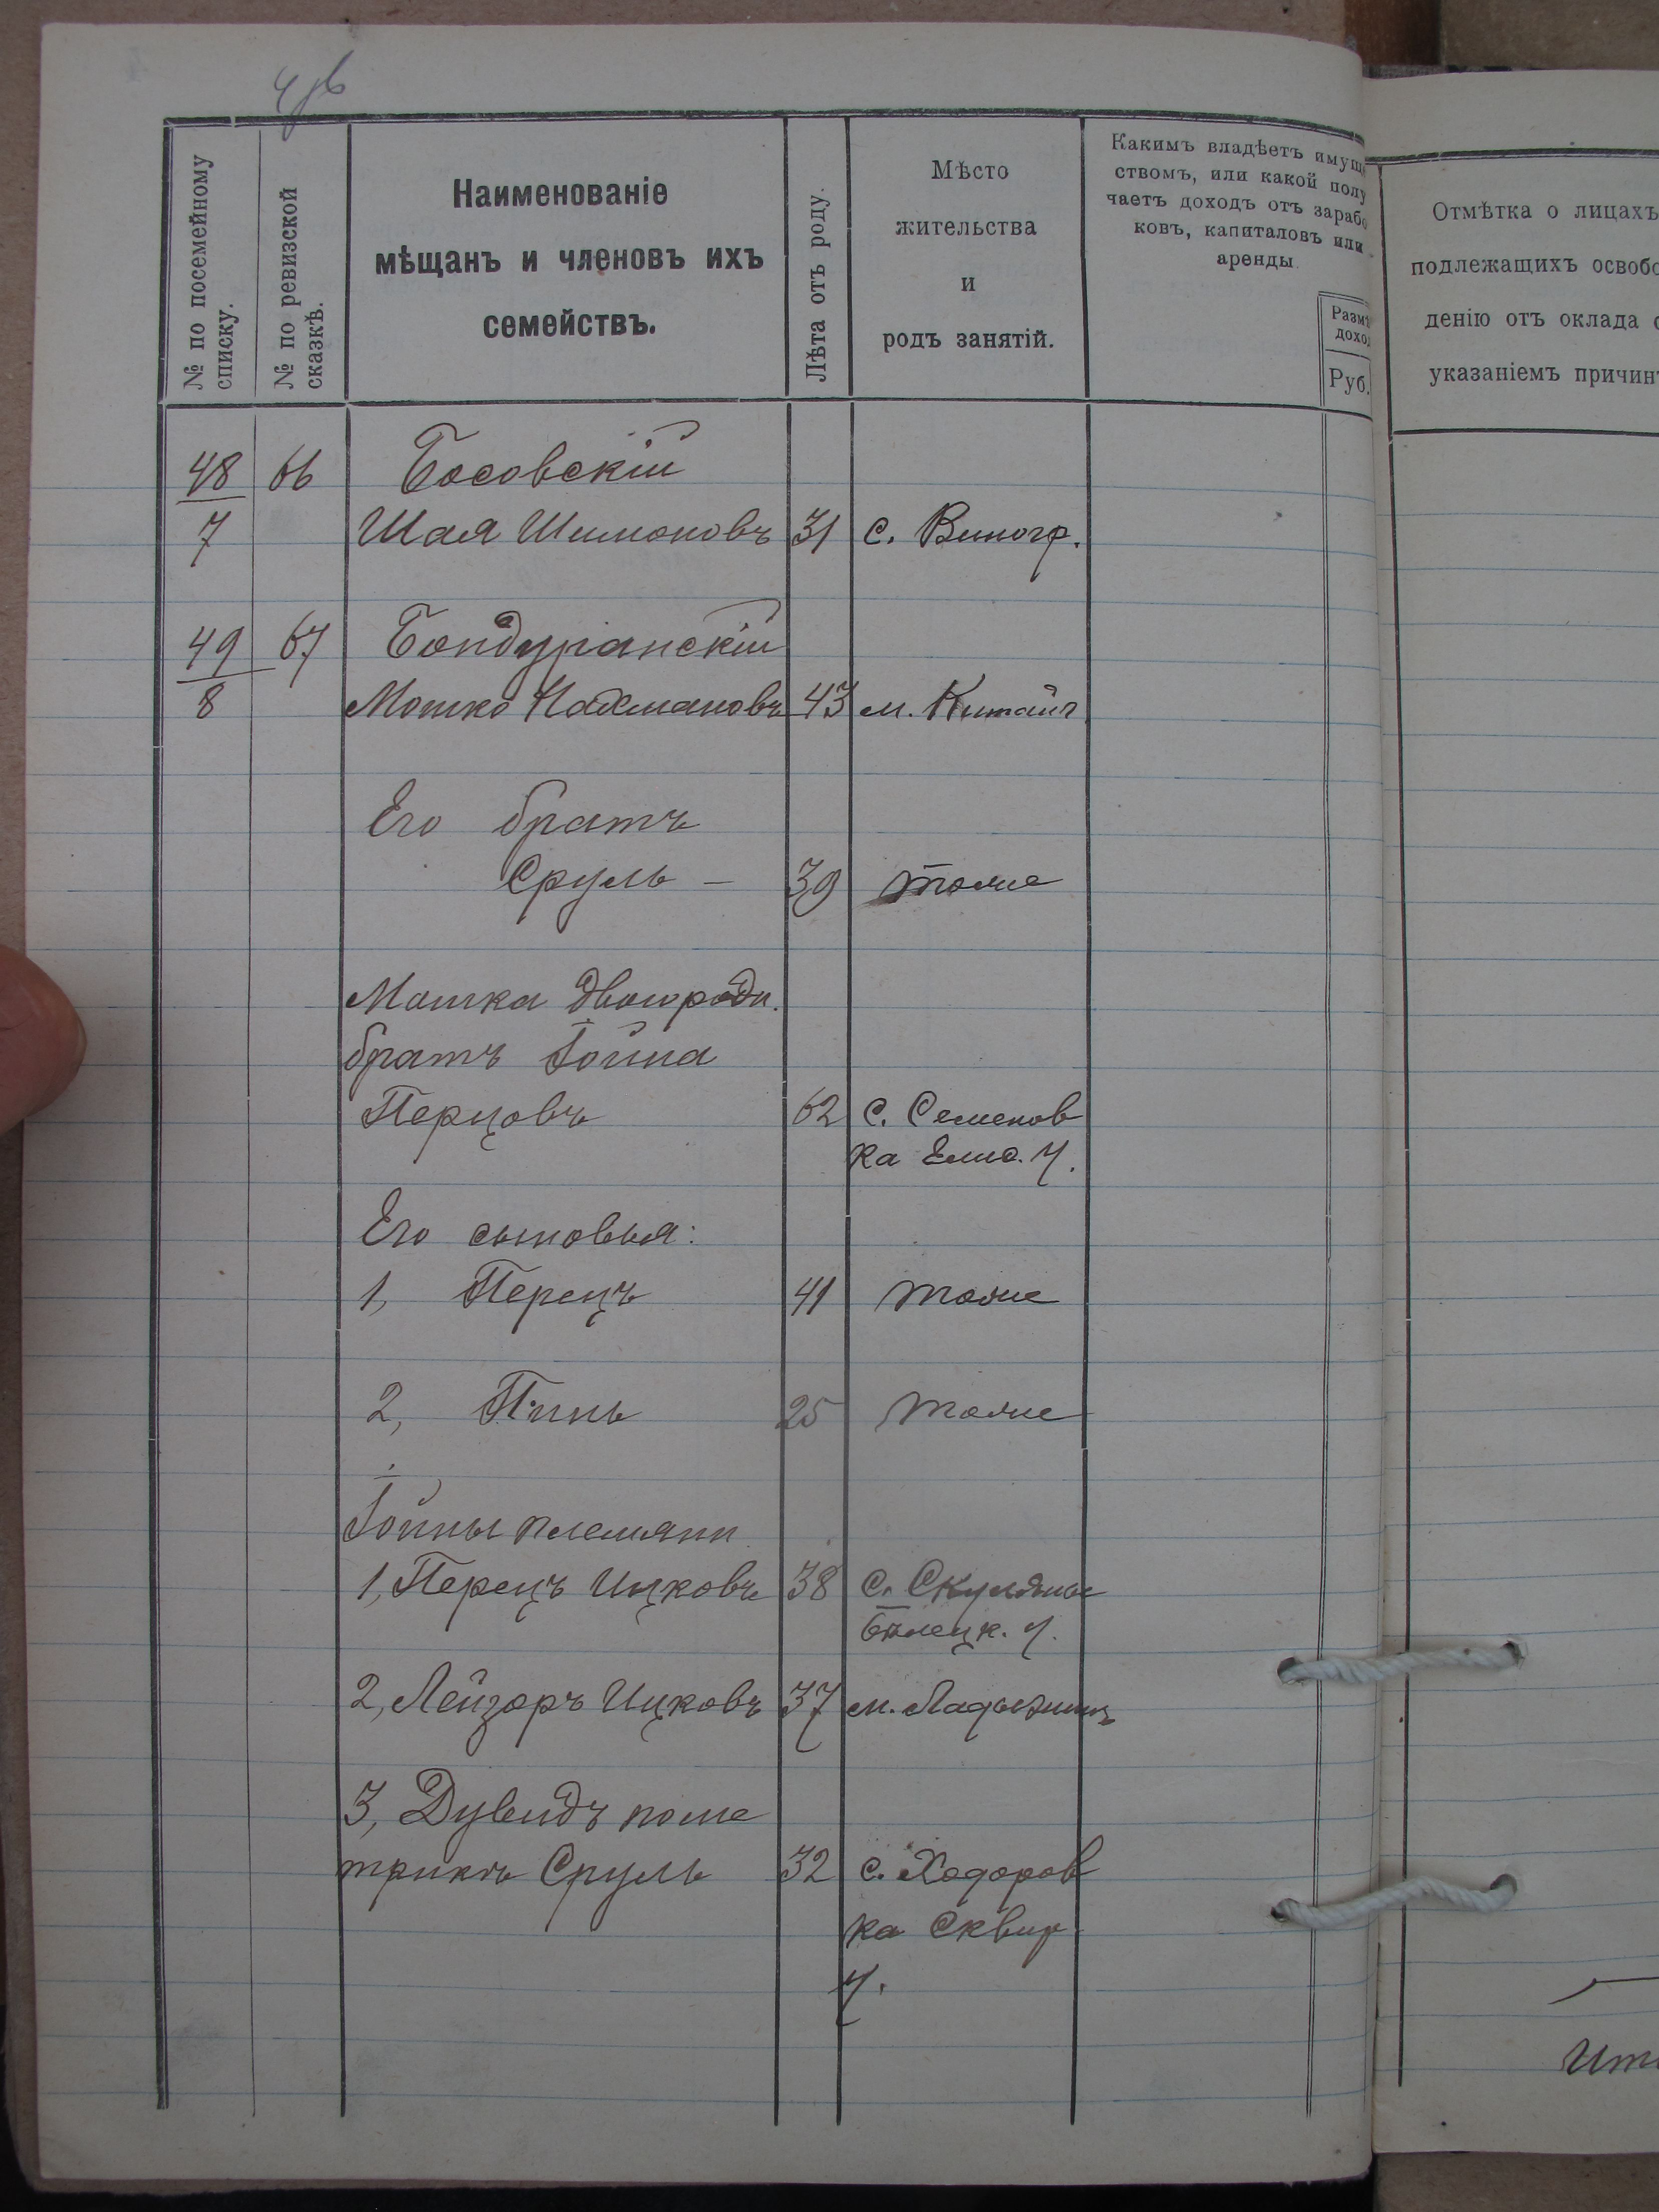 № по посемейному
списку.
№ по ревизской
сказкѣ.
Наименованіе
мѣщанъ и членовъ ихъ
семействъ.
Лѣта отъ роду.
Мѣсто
жительства
и
родъ занятій.
Какимъ владѣетъ имуще
ствомъ, или какой полу
чаетъ доходъ отъ зарабо
ковъ, капиталовъ или
аренды
Размѣ
доход
Руб.
Отмѣтка о лицахъ
подлежащихъ освобо
денію отъ оклада с
указаніемъ причинъ
48 66 Босовскій
7 Шая Шимоновъ 31 с. Виногр.
49 67 Бондурянскій
8 Мошко Нахмановъ 43 м. Китайг
Его братъ
Сруль — 39 тоже
Мошка двоюродн.
братъ Іойна
Перцовъ 62 с. Семенов
ка Елис. у.
Его сыновья:
1, Перецъ 41 тоже
2, Пинь 25 тоже
Іойны племянн
1, Перецъ Ицковъ 38 с. Скуляны
Бѣлецк. у.
2, Лейзоръ Ицковъ 37 м. Ладыжинъ
3, Дувидъ по ме
трикѣ Сруль 32 с. Ходоров
ка Сквир
у.
Ито